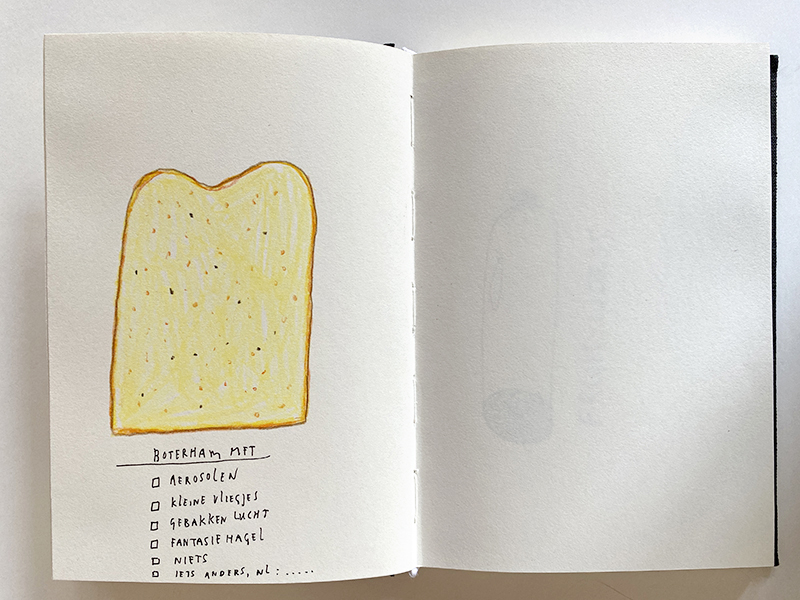 BOTERHAM MET
AEROSOLEN
KLEINE VLIEGJES
GEBAKKEN LUCHT
FANTASIE HAGEL
NIETS
IETS ANDERS, NL : .....